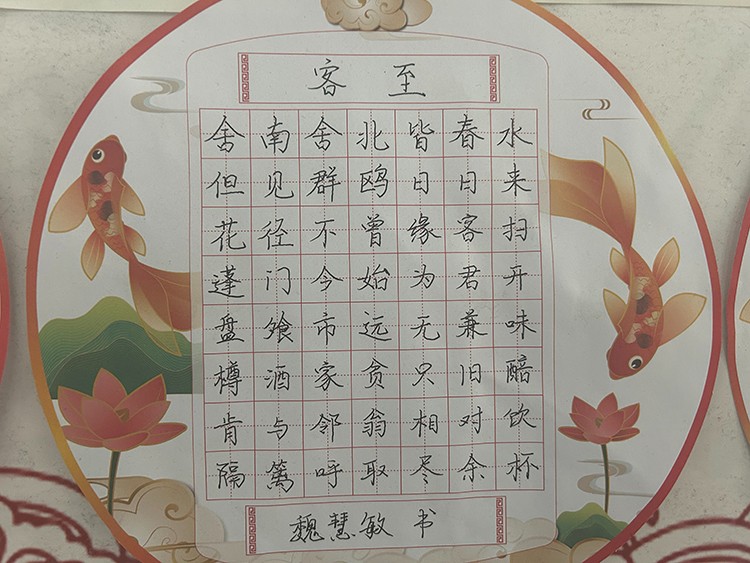 客至
舍南舍北皆春水
但见群鸥日日来
花径不曾缘客扫
蓬门今始为君开
盘飧市远无兼味
樽酒家贫只旧醅
肯与邻翁相对饮
隔篱呼取尽余杯
魏慧敏书